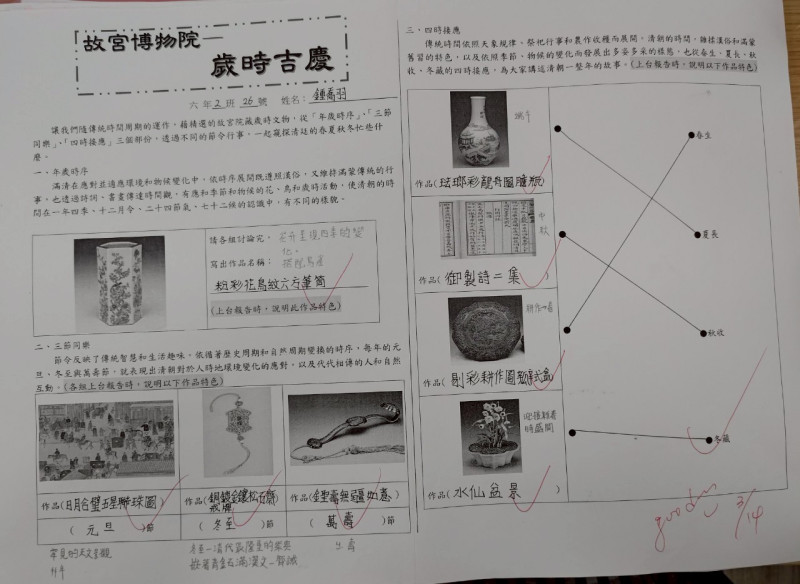 故宮博物院—
歲時吉慶
六年2班26號 姓名：鍾喬羽
讓我們隨傳統時間周期的運作，藉精選的故宮院藏歲時文物，從「年歲時序」、「三節
同樂」、「四時接應」三個部份，透過不同的節令行事，一起窺探清廷的春夏秋冬忙些什
麼。
一、年歲時序
滿清在應對並適應環境和物候變化中，依時序展開既遵照漢俗，又維持滿蒙傳統的行
事。也透過詩詞、書畫傳達時間觀，有應和季節和物候的花、鳥和歲時活動，使清朝的時
間在一年四季、十二月令、二十四節氣、七十二候的認識中，有不同的樣貌。
請各組討論完，
寫出作品名稱：
粉彩花鳥紋六方筆筒
(上台報告時，說明此作品特色)
二、三節同樂
節令反映了傳統智慧和生活趣味，依循著歷史周期和自然周期變換的時序，每年的元
旦、冬至與萬壽節，就表現出清朝對於人時地環境變化的應對，以及代代相傳的人和自然
互動。(各組上台報告時，說明以下作品特色)
作品(日月合璧五星聯珠圖)
(元旦)節
作品(銅鍍金鑲松石齋戒牌)
(冬至)節
作品(無疆如意)
(萬壽)節
三、四時接應
傳統時間依照天象規律、祭祀行事和農作收穫而展開，清朝的時間，雜揉漢俗和滿蒙
舊習的特色，以及依照季節、物候的變化而發展出多姿多采的樣態，也從春生、夏長、秋
收、冬藏的四時接應，為大家講述清朝一整年的故事。(上台報告時，說明以下作品特色)
端午
作品(琺瑯彩龍舟圖膽瓶)
中秋
作品(御製詩二集)
作品(剔彩耕作圖盒)
作品(水仙盆景)
春生
夏長
秋收
冬藏
good
3/14